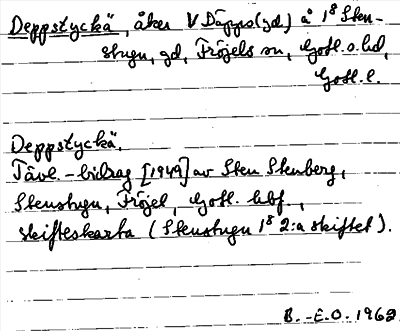 Deppstyckä, åker V Däpps (gd) å 1/8 Sten-
stugu, gd, Fröjels sn, Gotl. s. hd,
Gotl. l.
Deppstyckä.
Tävl.-bidrag [1949] av Sten Stenberg,
Stenstugu, Fröjel, Gotl. hbf.,
skifteskarta (Stenstugu 1/8 2:a skiftet).
B.-E.O. 1962